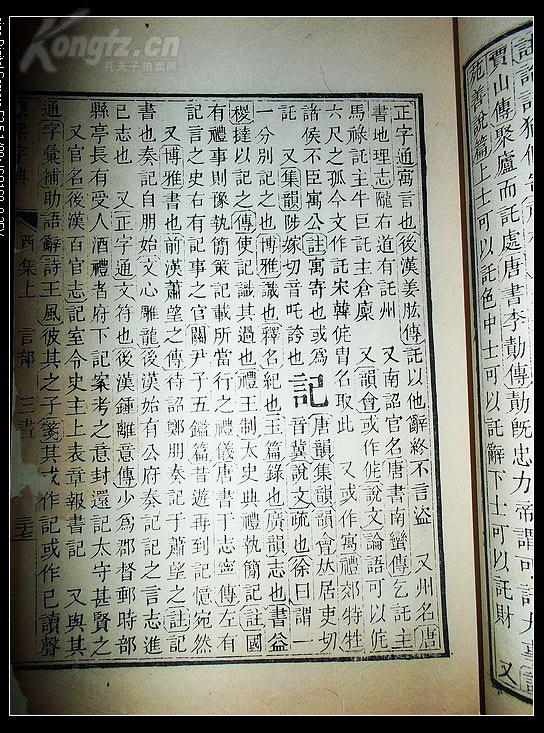 賈山傳聚廬而託處唐書李勣傳勣旣忠力帝謂可託大事
苑善說篇上士可以託色中士可以託辭下士可以託財 又
正字通寓言也後漢姜肱傳託以他辭終不言盜 又州名唐
書地理志隴右道有託州 又南詔官名唐書南蠻傳乞託主
馬祿託主牛巨託主倉廩 又韻會或作侂說文論語可以侂
六尺之孤今文作託宋韓侂冑名取此 又或作寓禮郊特牲
諸侯不臣寓公註寓寄也或爲
託 又集韻陟嫁切音吒誇也
記
唐韻集韻韻會𠀤居吏切
音冀說文疏也徐曰謂一
一分別記之也博雅識也釋名紀也玉篇錄也廣韻志也書益
稷撻以記之傳使記識其過也禮王制太史典禮執簡記註國
有禮事則豫執簡策記載所當行之禮儀唐書于志寧傳左有
記言之史右有記事之官關尹子五鑑篇昔遊再到記憶宛然
又博雅書也前漢蕭望之傳待詔鄭朋奏記于蕭望之註記
書也奏記自朋始文心雕龍後漢始有公府奏記記之言志進
已志也 又正字通文符也後漢鍾離意傳少爲郡督郵時部
縣亭長有受人酒禮者府下記案考之意封還記太守甚賢之
又官名後漢百官志記室令史主上表章報書記 又與其
通字彙補助語辭詩王風彼其之子箋其或作記或作己讀聲
康熙字典 酉集上 言部 三畫
Kongfz.cn
孔夫子拍卖网